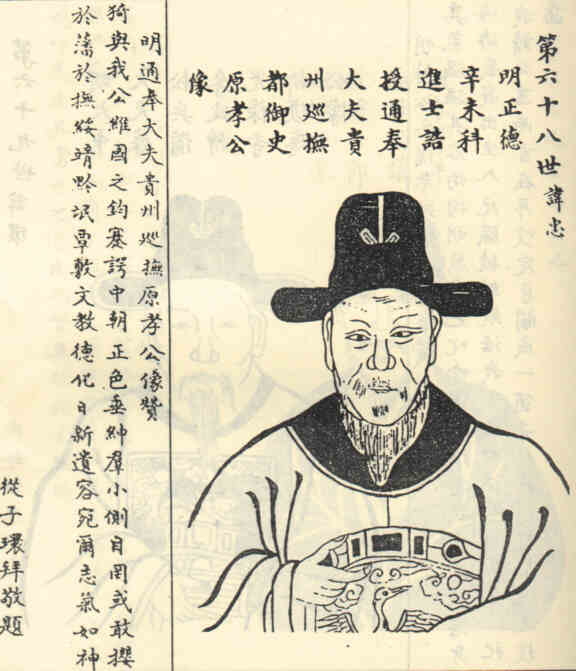 第六十八世諱忠
明正德
辛未科
進士誥
授通奉
大夫貴
州巡撫
都御史
原孝公
像
明通奉大夫貴州巡撫原孝公像贊
猗與我公維國之鈞蹇諤中朝正色垂紳羣小側目罔或敢攖
於藩於撫綏靖黔氓覃敷文教德化日新遺容宛爾志氣如神
從子環拜敬題